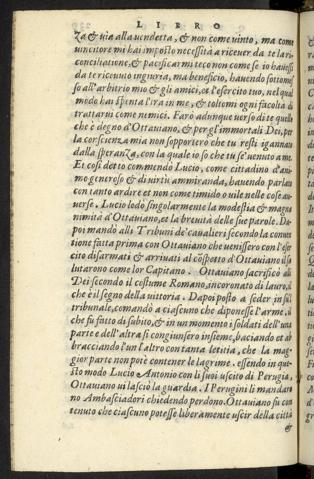 LIBRO
za & via alla vendetta, & non come uinto, ma come
uincitore mi hai imposto necessità a riceuer da te la ri-
conciliatione, & pacificarmi teco non come se io hauessi
da te riceuuto ingiuria, ma beneficio, hauendo sottomes
so all'arbitrio mio & gli amici, et l'esercito tuo, nel qual
modo hai spenta l'ira in me, & toltomi ogni facoltà di
trattarui come nemici. Farò adunque uerso di te quello
che è degno d'Ottauiano, & per gl'immortali Dei, per
la conscienza mia non sopporterò che tu resti ingannato
dalla speranza, con la quale io so che tu se' uenuto a me.
Et così detto commendò Lucio, come cittadino d'ani-
mo generoso & di uirtù ammiranda, hauendo parlato
con tanto ardire et non come timido o uile nelle cose au-
uerse. Lucio lodò singolarmente la modestia & magna
nimità d'Ottauiano, et la breuità delle sue parole. Da-
poi mandò alli Tribuni de' caualieri secondo la conuen
tione fatta prima con Ottauiano che uenissero con l'eser
cito disarmati & arriuati al cospetto d'Ottauiano il sa
lutarono come lor Capitano. Ottauiano sacrificò alli
Dei secondo il costume Romano, incoronato di lauro, il
che è il segno della uittoria. Dapoi posto a seder in sul
tribunale, comandò a ciascuno che diponesse l'arme, il
che fu fatto di subito, & in un momento i soldati dell'una
parte e dell'altra si congiunsero insieme, baciando et ab
bracciando l'un l'altro con tanta letitia, che la mag-
gior parte non potè contener le lagrime. essendo in que
sto modo Lucio Antonio con li suoi uscito di Perugia,
Ottauiano ui lasciò la guardia. I Perugini li mandaro
no Ambasciadori chiedendo perdono. Ottauiano fu con
tenuto che ciascuno potesse liberamente uscir della città
&